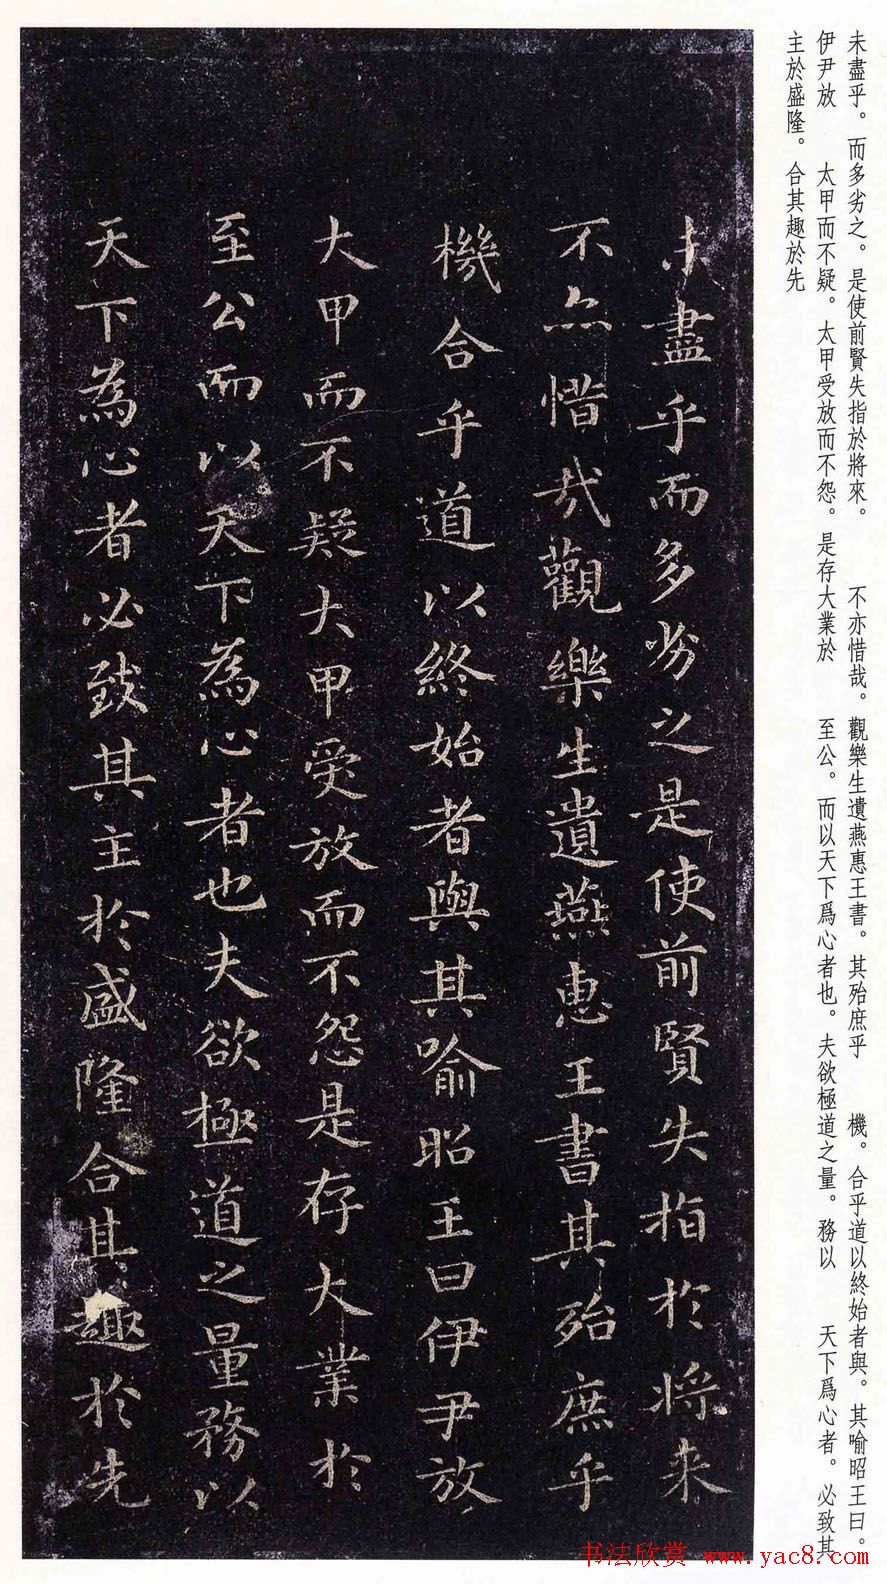 未盡乎。而多劣之。是使前賢失指於將來。　不亦惜哉。觀樂生遺燕惠王書。其殆庶乎　機。合乎道以終始者與。其喻昭王曰。
伊尹放　太甲而不疑。太甲受放而不怨。是存大業於　至公。而以天下爲心者也。夫欲極道之量。務以　天下爲心者。必致其
主於盛隆。合其趣於先
未盡乎而多劣之是使前賢失指於將来
不亦惜哉觀樂生遺燕惠王書其殆庶乎
機合乎道以終始者與其喻昭王曰伊尹放
大甲而不疑大甲受放而不怨是存大業於
至公而以天下為心者也夫欲極道之量務以
天下為心者必致其主於盛隆合其趣於先
书法欣赏 www.yac8.com